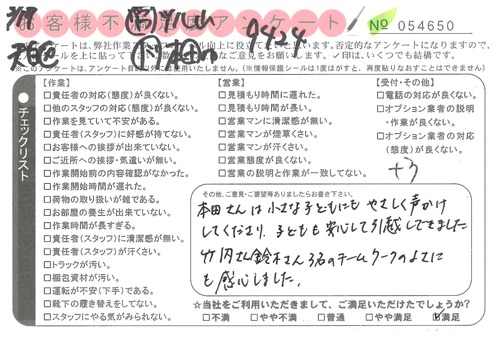 3/18
お客様不満足度アンケート
№ 054650
9424
アンケートは、弊社作業
ルを上に貼って
※このアンケートは、アンケート目
いたしません。(※情報保護シールは1度はがすと、再度貼りなおすことはできません)
チェックリスト
【作業】
□責任者の対応(態度)が良くない。
□他のスタッフの対応(態度)が良くない。
□作業を見ていて不安がある。
□責任者(スタッフ)に好感が持てない。
□お客様への挨拶が出来ていない。
□ご近所への挨拶・気遣いが無い。
□作業開始前の内容確認がなかった。
□作業開始時間が遅れた。
□荷物の取り扱いが雑である。
□お部屋の養生が出来ていない。
□作業時間が長すぎる。
□責任者(スタッフ)に清潔感が無い。
□責任者(スタッフ)が汗くさい。
□トラックが汚い。
□梱包資材が汚い。
□運転が不安(下手)である。
□靴下の履き替えをしてない。
□スタッフにやる気がみられない。
【営業】
□見積もり時間に遅れた。
□見積もり時間が長い。
□営業マンに清潔感が無い。
□営業マンが煙草くさい。
□営業マンが汗くさい。
□営業態度が良くない。
□営業の説明と作業が一致してない。
【受付・その他】
□電話の対応が良くない。
□オプション業者の説明
・作業が良くない。
□オプション業者の対応
(態度)が良くない。
+3
その他、ご意見・ご要望等ありましたらお書き下さい。
本田さんは小さな子どもにもやさしく声かけ
してくださり、子どもも安心して引越しできました
竹内さん鈴木さん3名のチームワークのよさに
も感心しました。
☆当社をご利用いただきまして、ご満足いただけたでしょうか?
□不満 □やや不満 □普通 □やや満足 ☑満足